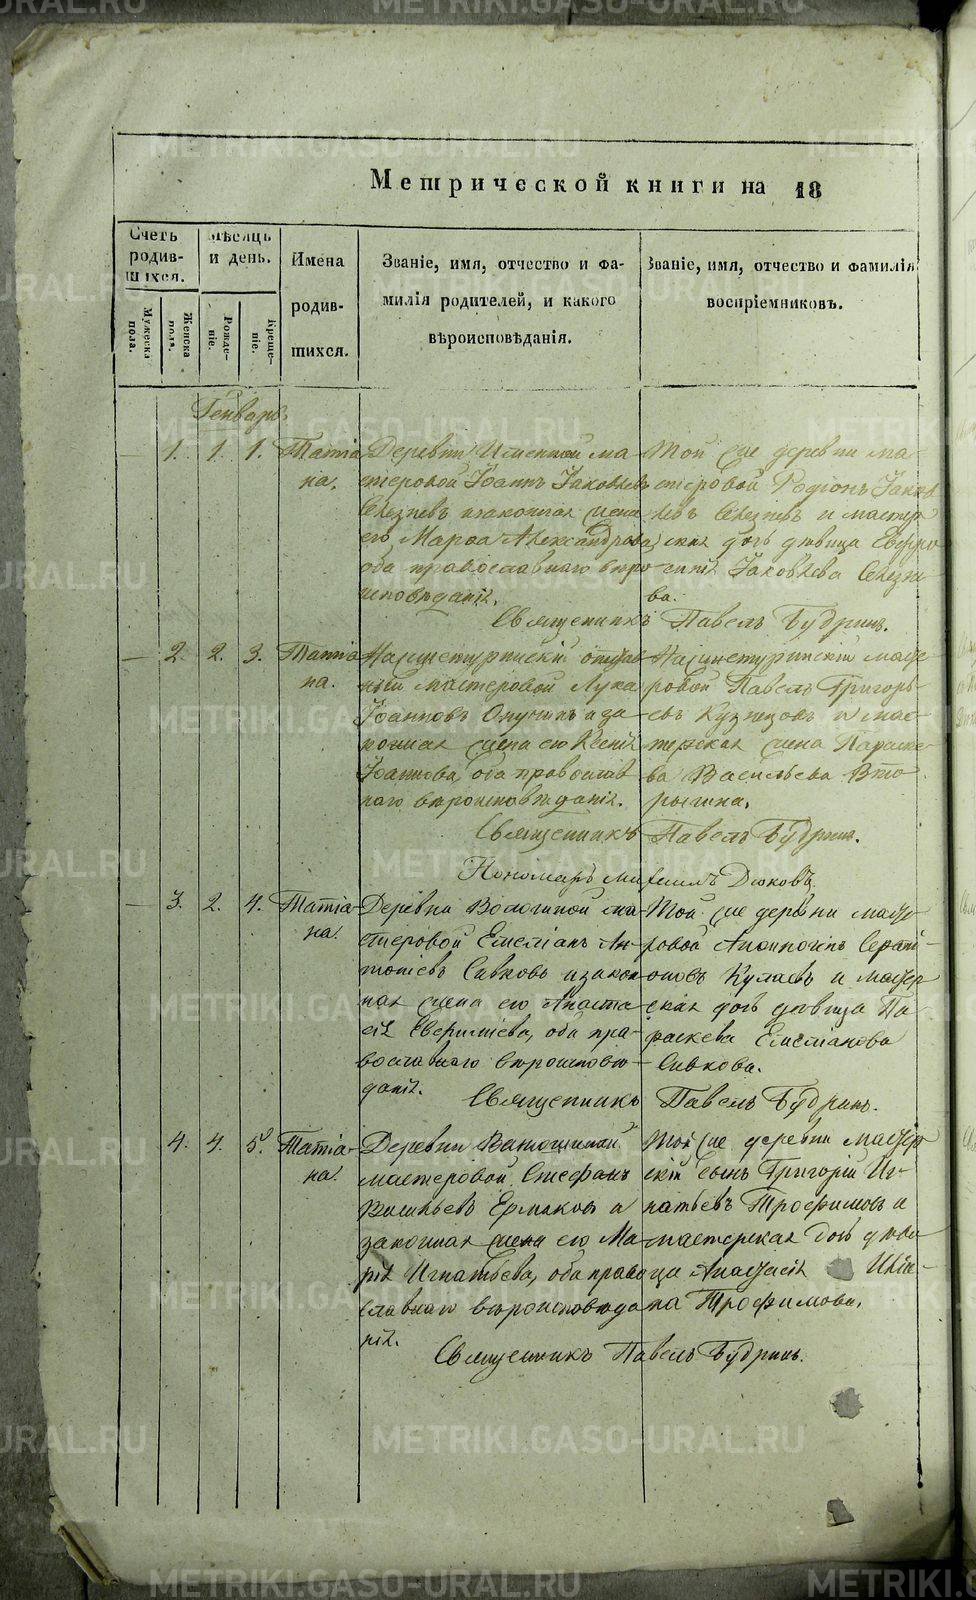 Метрической книги на 18
Счетъ родив-шихся.
Мужеска пола.
Женска пола.
Мѣсяцъ и день.
Рожде-ніе.
Креще-ніе.
Имена родив-шихся.
Званіе, имя, отчество и фа-
милія родителей, и какого
вѣроисповѣданія.
Званіе, имя, отчество и фамилія
воспріемниковъ.
Генварь
1. 1. 1. Татіа-
на.
Деревни ма-
стеровой Іоаннъ Іаковлевъ
Селезневъ и законная жена
его Марѳа Александрова,
оба православнаго вѣро-
исповѣданія.
Той же деревни ма-
стеровой Родіонъ Іаков-
левъ Селезневъ и мастер-
ская дочь дѣвица Евфро-
синія Іаковлева Селезне-
ва.
Священникъ Павелъ Будринъ.
2. 2. 3. Татіа-
на.
мастеровой Лука
Іоанновъ и за-
конная жена его Ксенія
Іоаннова, оба православ-
наго вѣроисповѣданія.
масте-
ровой Павелъ Григорь-
евъ Кузнецовъ и мас-
терская жена Параске-
ва Васильева Вто-
рыгина.
Священникъ Павелъ Будринъ.
Пономарь Михаилъ Дюковъ.
3. 2. 4. Татіа-
на.
Деревни ма-
стеровой Емеліанъ Ан-
тоніевъ Сивковъ и закон-
ная жена его Анаста-
сія оба пра-
вославнаго вѣроисповѣ-
данія.
Той же деревни масте-
ровой Серап-
іоновъ Кулаевъ и мастер-
ская дочь дѣвица Па-
раскева Емеліанова
Сивкова.
Священникъ Павелъ Будринъ.
4. 4. 5. Татіа-
на.
Деревни
мастеровой Стефанъ
Васильевъ Ермаковъ и
законная жена его Ма-
рія Игнатьева, оба право-
славнаго вѣроисповѣда-
нія.
Той же деревни мастер-
скій сынъ Григорій Иг-
натьевъ Трофимовъ и
мастерская дочь дѣви-
ца Анастасія
на Трофимова.
Священникъ Павелъ Будринъ.
METRIKI.GASO-URAL.RU